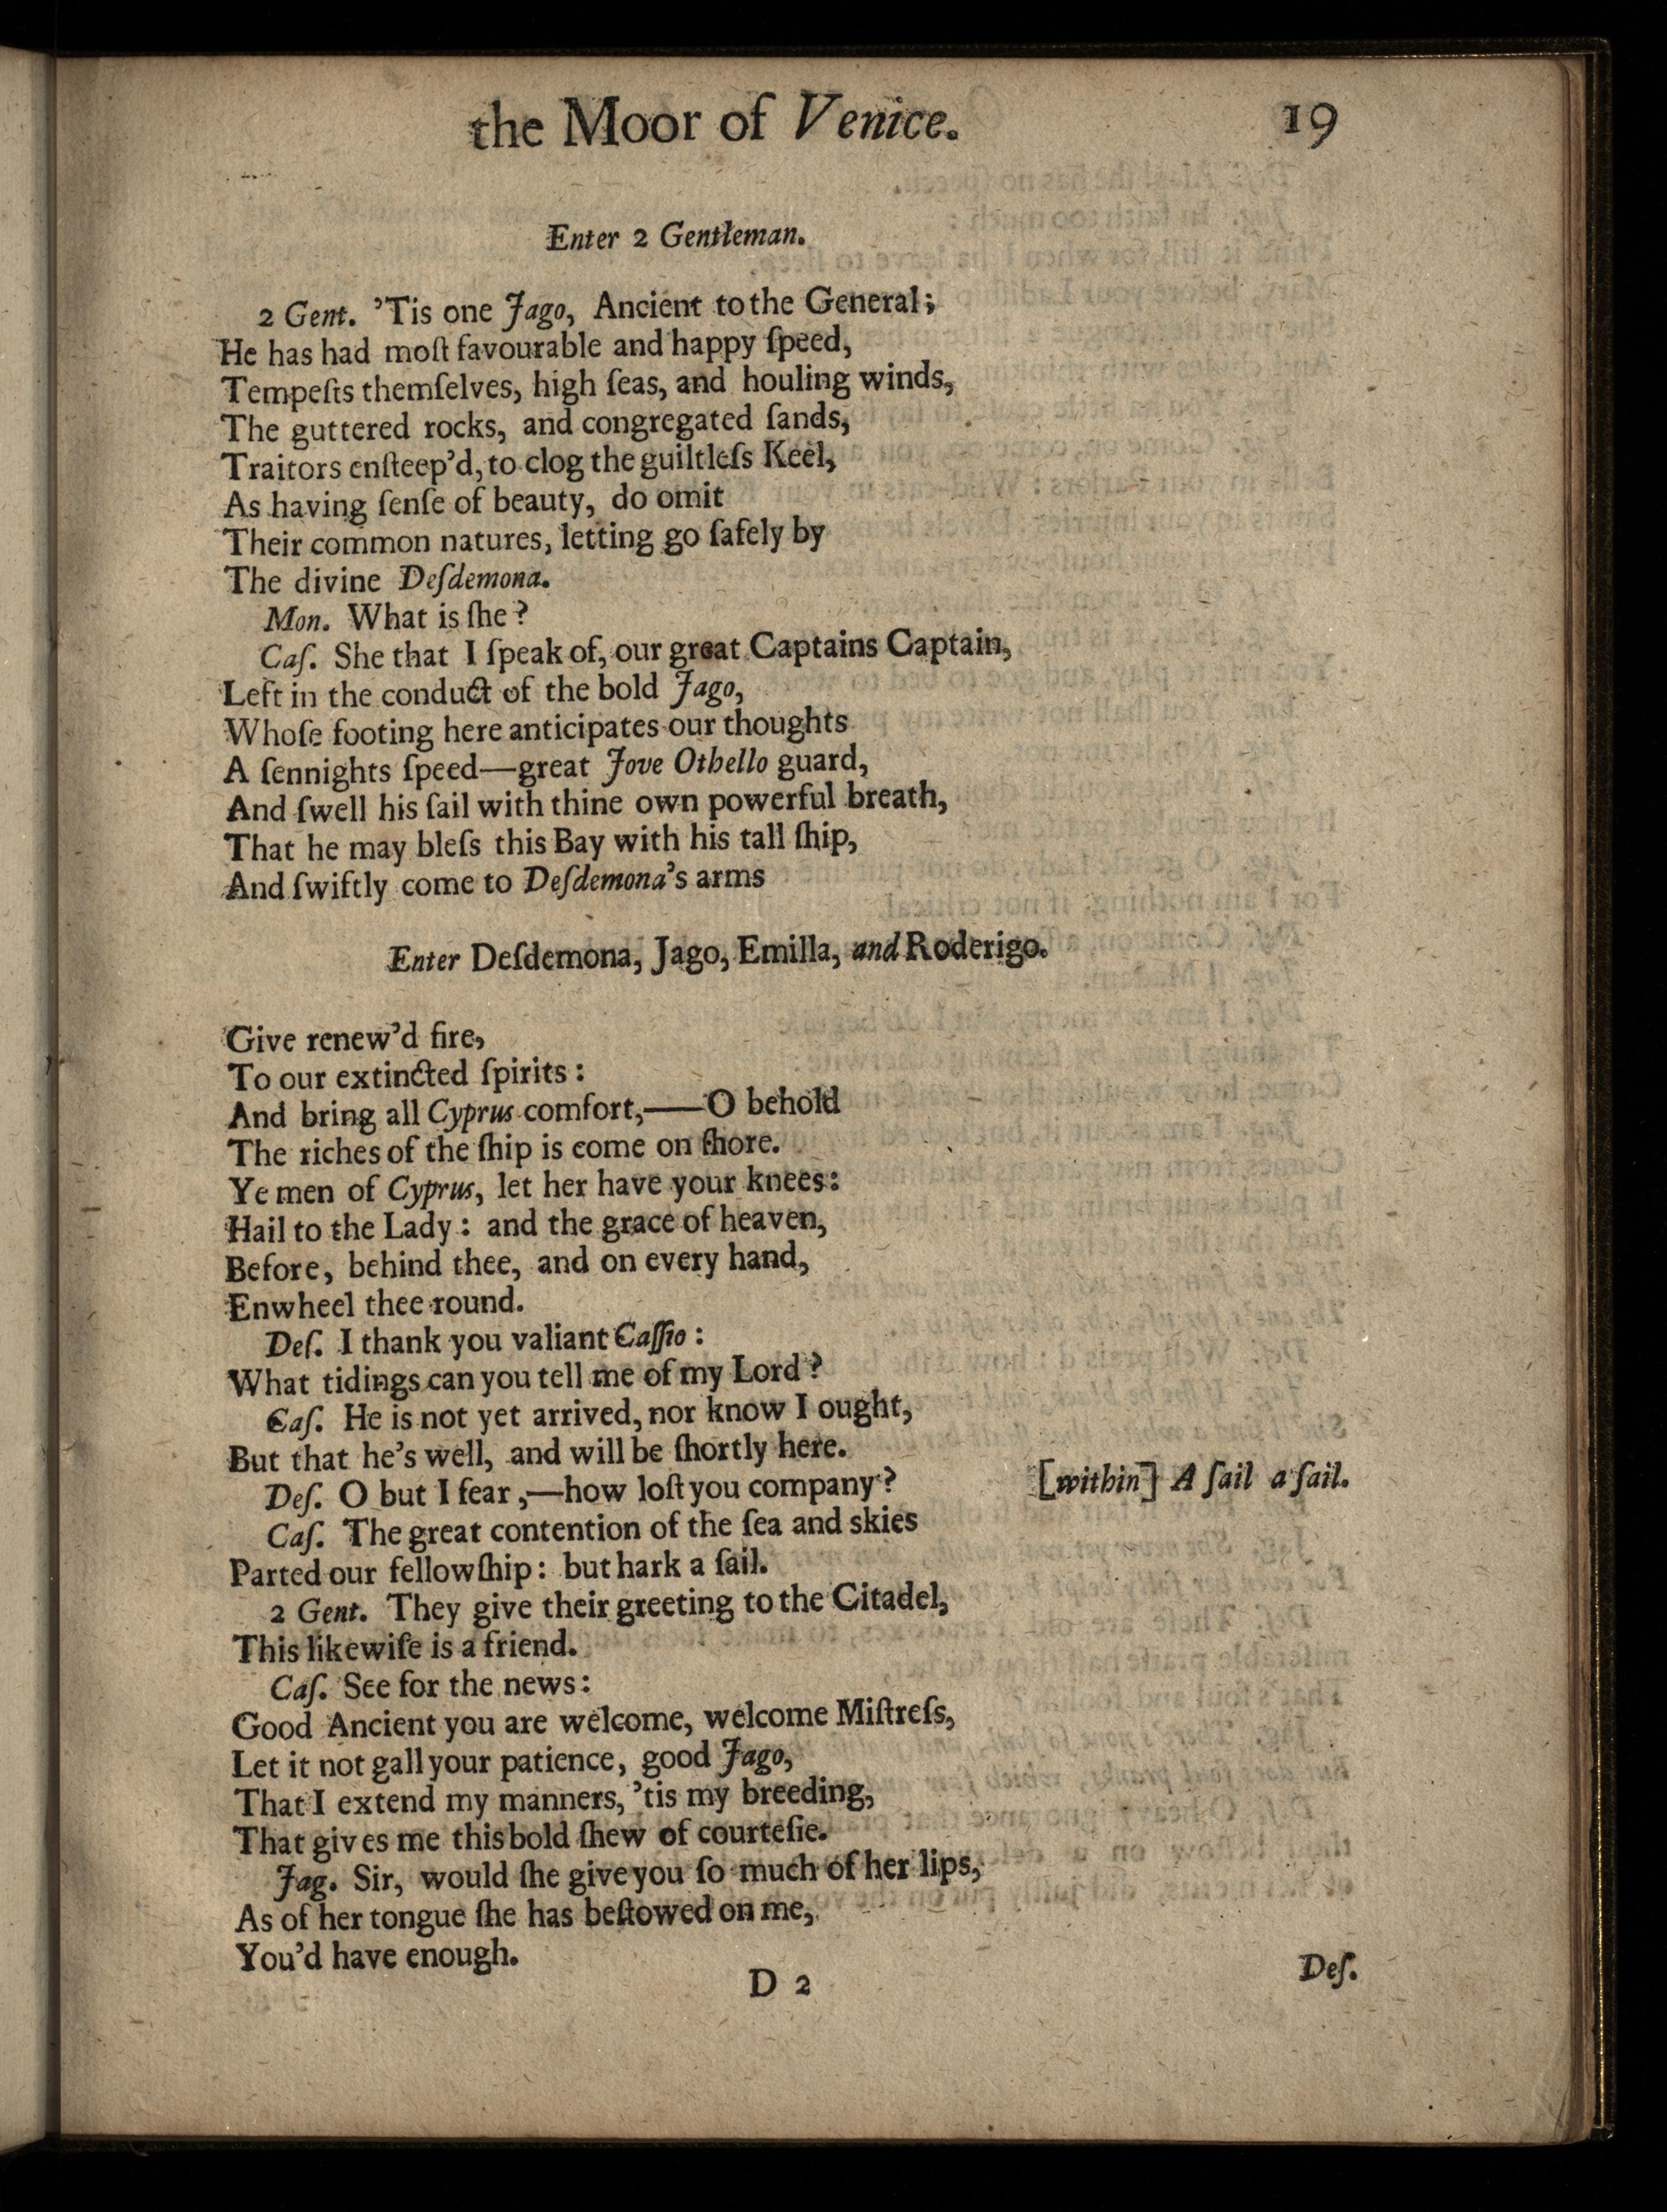 the Moor of Venice. 19
Enter 2 Gentleman.
2 Gent. ’Tis one Jago, Ancient to the General;
He has had moſt favourable and happy ſpeed,
Tempeſts themſelves, high ſeas, and houling winds,
The guttered rocks, and congregated ſands,
Traitors enſteep’d, to clog the guiltleſs Keel,
As having ſenſe of beauty, do omit
Their common natures, letting go ſafely by
The divine Deſdemona.
Mon. What is ſhe?
Caſ. She that I ſpeak of, our great Captains Captain,
Left in the conduct of the bold Jago,
Whoſe footing here anticipates our thoughts
A ſennights ſpeed—great Jove Othello guard,
And ſwell his ſail with thine own powerful breath,
That he may bleſs this Bay with his tall ſhip,
And ſwiftly come to Deſdemona’s arms
Enter Deſdemona, Jago, Emilla, and Roderigo.
Give renew’d fire,
To our extincted ſpirits:
And bring all Cyprus comfort,—O behold
The riches of the ſhip is come on ſhore.
Ye men of Cyprus, let her have your knees:
Hail to the Lady: and the grace of heaven,
Before, behind thee, and on every hand,
Enwheel thee round.
Deſ. I thank you valiant Caſſio:
What tidings can you tell me of my Lord?
Caſ. He is not yet arrived, nor know I ought,
But that he’s well, and will be ſhortly here.
Deſ. O but I fear,—how loſt you company? [within] A ſail a ſail.
Caſ. The great contention of the ſea and skies
Parted our fellowſhip: but hark a ſail.
2 Gent. They give their greeting to the Citadel,
This likewiſe is a friend.
Caſ. See for the news:
Good Ancient you are welcome, welcome Miſtreſs,
Let it not gall your patience, good Jago,
That I extend my manners, ’tis my breeding,
That gives me this bold ſhew of courteſie.
Jag. Sir, would ſhe give you ſo much of her lips,
As of her tongue ſhe has beſtowed on me,
You’d have enough.
D 2 Deſ.